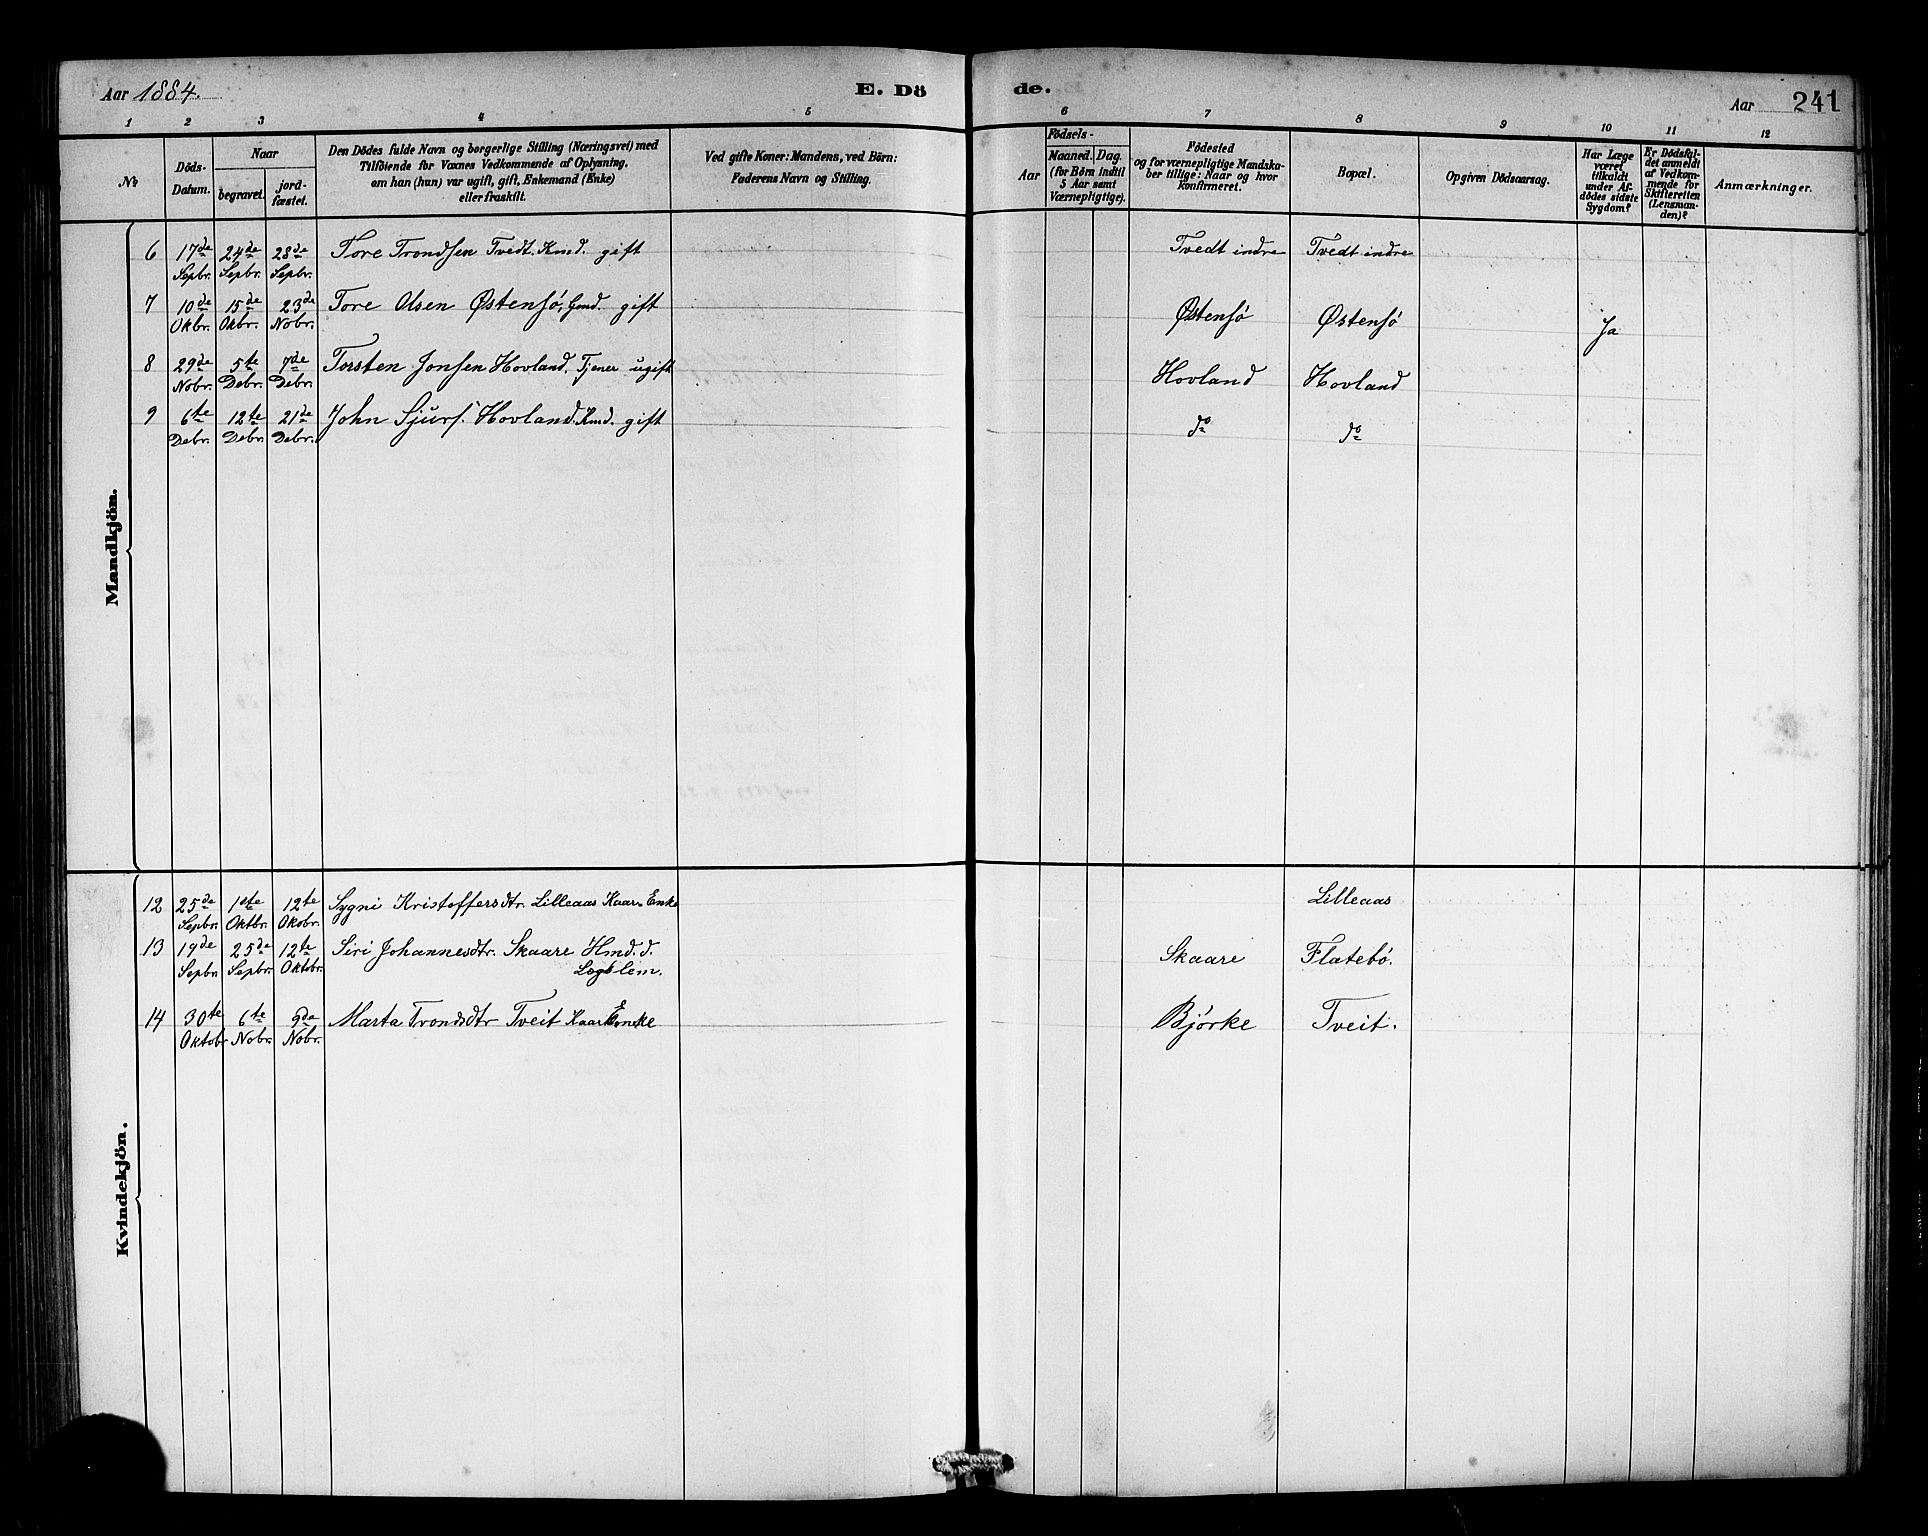 Aar 1884. E. Dö de. Aar 241
1 2 3 4 5 6 7 8 9 10 11 12
No
Döds-Datum.
Naar
begravet.
jord-fæstet.
Den Dödes fulde Navn og borgerlige Stilling (Næringsvei) med
Tilföiende for Voxnes Vedkommende af Oplysning,
om han (hun) var ugift, gift, Enkemand (Enke)
eller fraskilt.
Ved gifte Koner: Mandens, ved Börn:
Faderens Navn og Stilling.
Födsels-
Aar
Maaned. Dag.
(for Börn indtil
5 Aar samt
Værnepligtige).
Födested
og for værnepligtige Mandska-
ber tillige: Naar og hvor
konfirmeret.
Bopæl.
Opgiven Dödsaarsag.
Har Læge
været
tilkaldt
under Af-
dödes sidste
Sygdom?
Er Dödsfal-
det anmeldt
af Vedkom-
mende for
Skifteretten
(Lensman-
den)?
Anmærkninger.
Mandkjön.
6 17de 24de 28de Tore Trondsen Tvedt. Kmd. gift Tvedt indre Tvedt indre
Sepbr. Sepbr. Sepbr.
7 10de 15de 23de Tore Olsen Østensø, Gmd. gift Østensø Østensø Ja
Okbr. Okbr. Nobr.
8 29de 5te 7de Torsten Jonsen Hovland. Tjener ugift Hovland Hovland
Nobr. Debr. Debr.
9 6te 12te 21de John Sjurs. Hovland. Kmd. gift do do
Debr. Debr. Debr.
Kvindekjön.
12 25de 1ste 12te Sygni Kristoffersdtr. Lilleaas Kaar Enke Lilleaas
Sepbr. Oktbr. Okobr.
13 19de 25de 12te Siri Johannesdtr. Skaare Hmd. d. Skaare Flatebø.
Sepbr. Sepbr. Oktobr. Logslem.
14 30te 6te 9de Marta Trondsdtr Tveit Kaar Enke Bjørke Tveit.
Oktobr Nobr. Nobr.